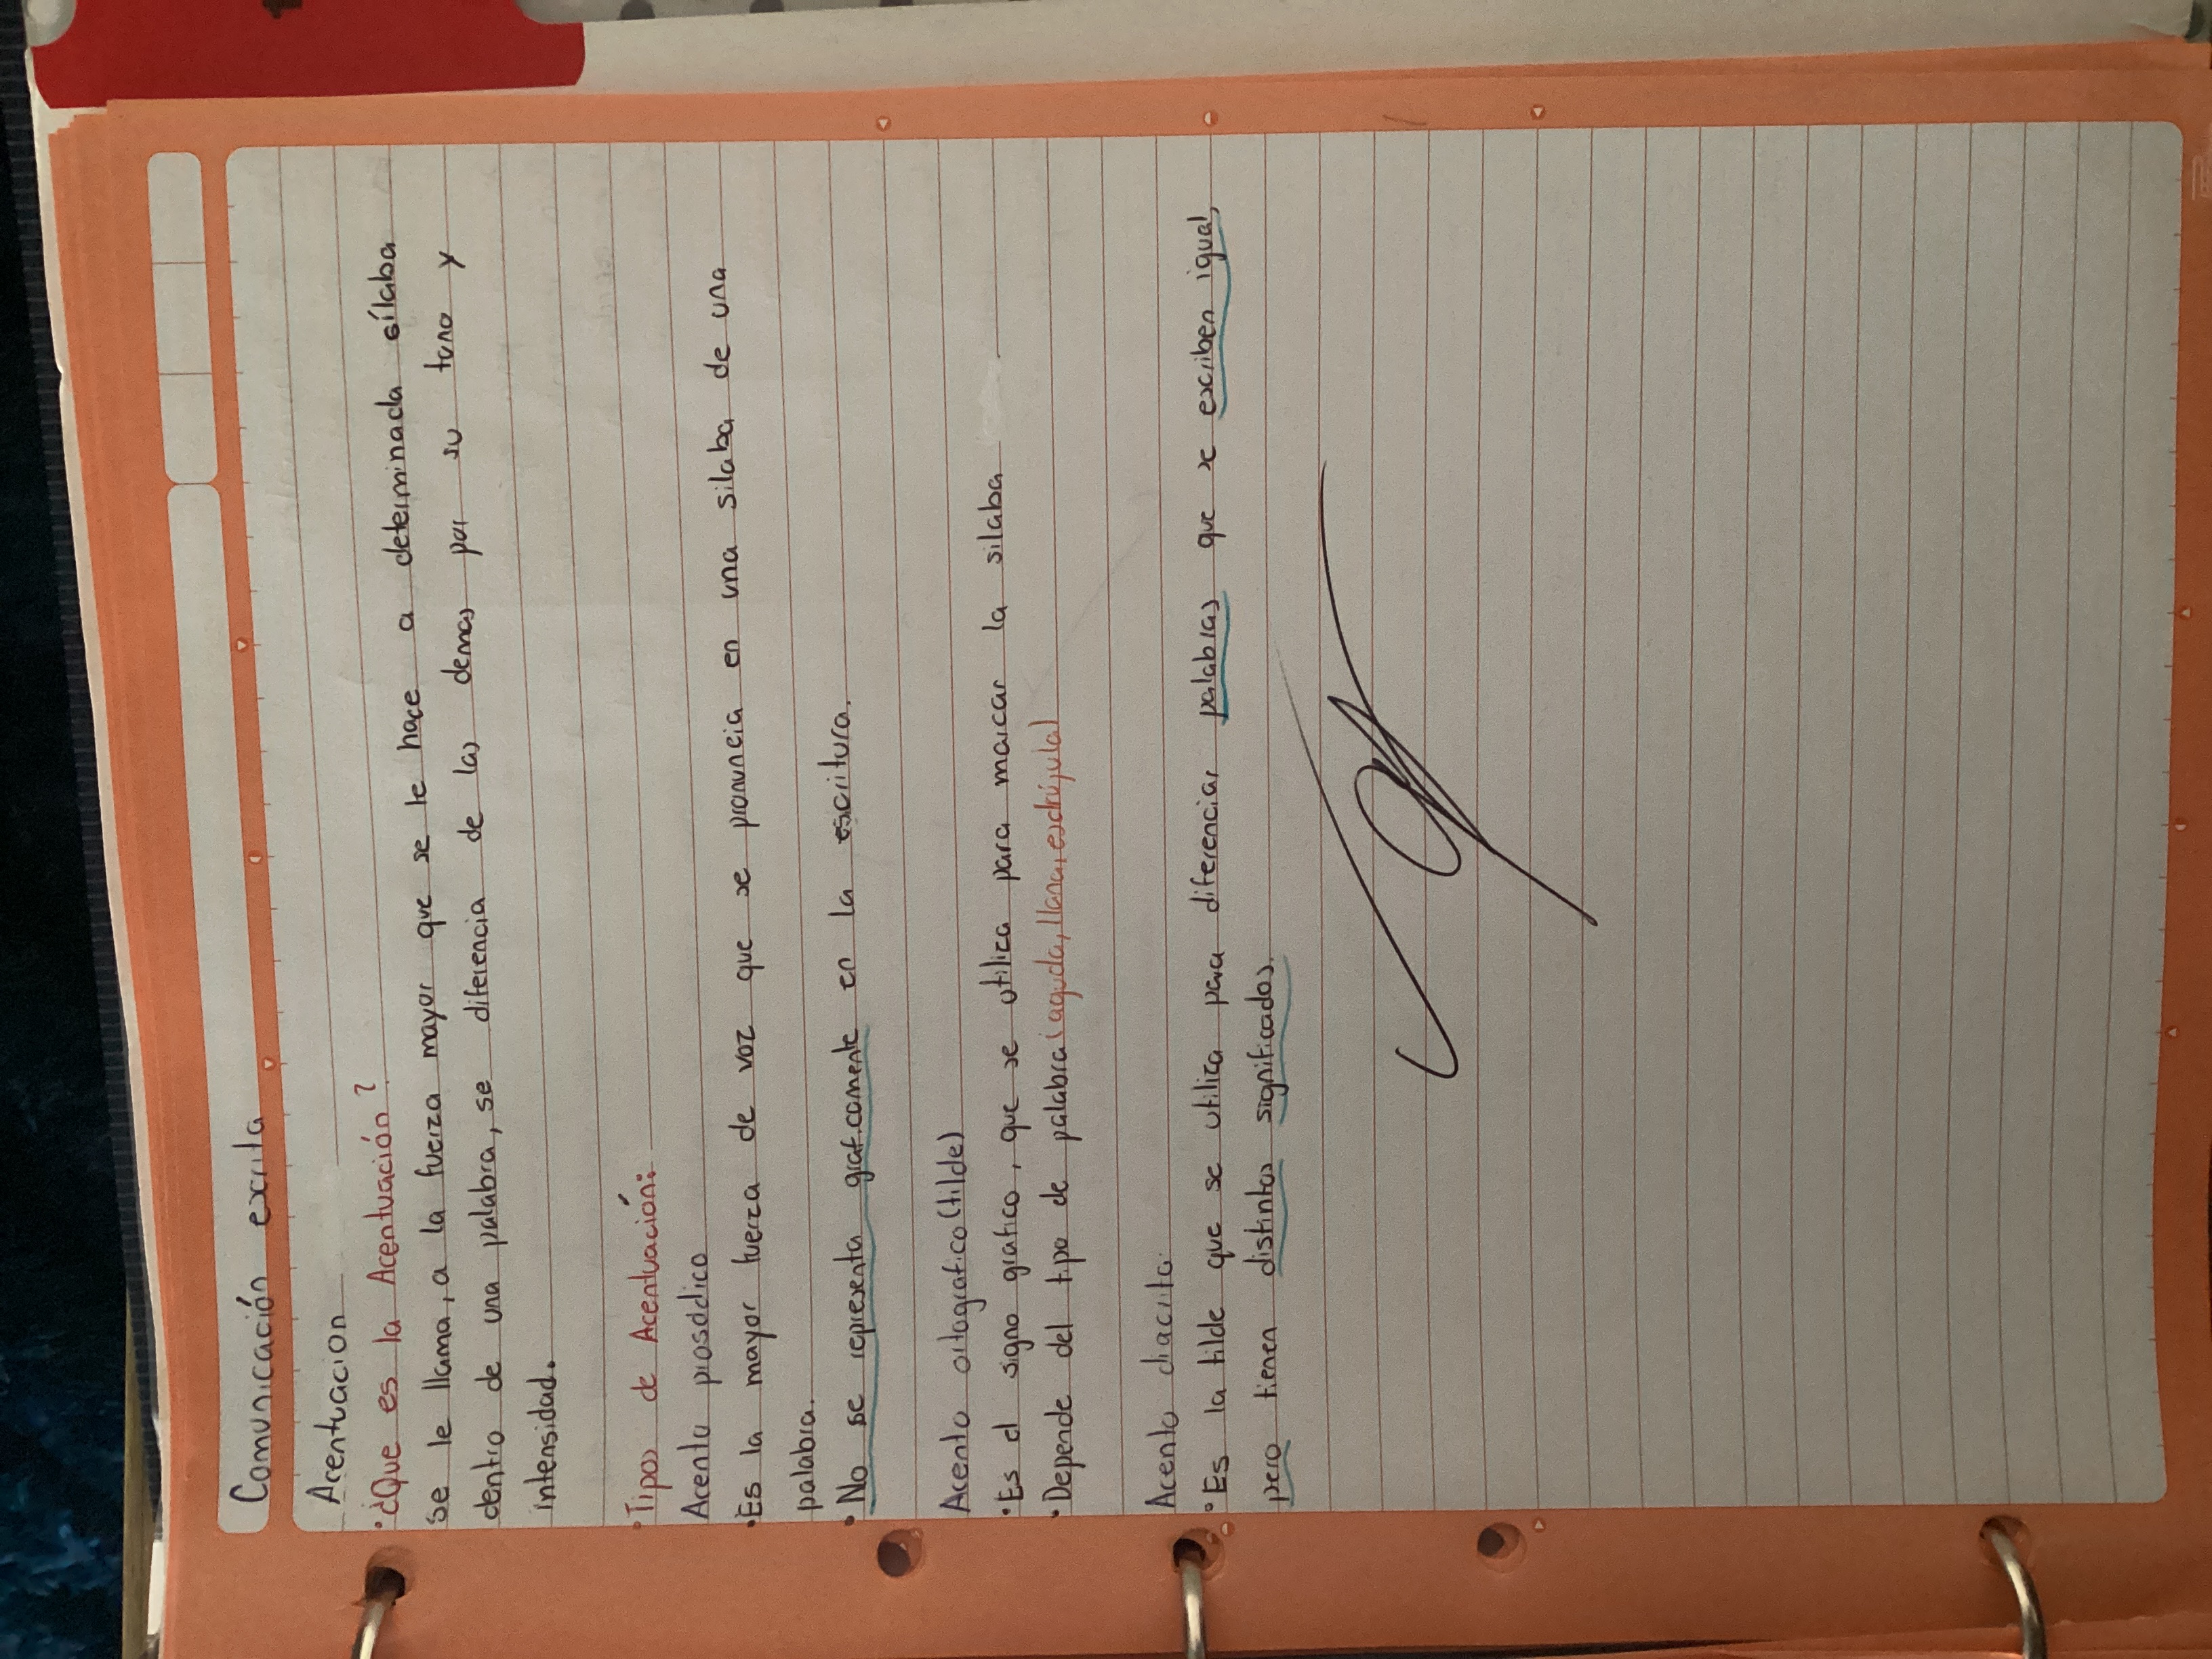 Comunicación escrita
Acentuacion
• ¿Que es la Acentuación?
se le llama, a la fuerza mayor que se le hace a determinada sílaba
dentro de una palabra, se diferencia de las demas por su tono y
intensidad.
• Tipos de Acentuación:
Acento prosódico
• Es la mayor fuerza de voz que se pronuncia en una silaba de una
palabra.
• No se representa graficamente en la escritura.
Acento ortografico (tilde)
• Es el signo grafico, que se utiliza para marcar la silaba
• Depende del tipo de palabra (aguda, llana, esdrújula)
Acento diacrito.
• Es la tilde que se utiliza para diferenciar palabras que se escriben igual,
pero tienen distintos significados.